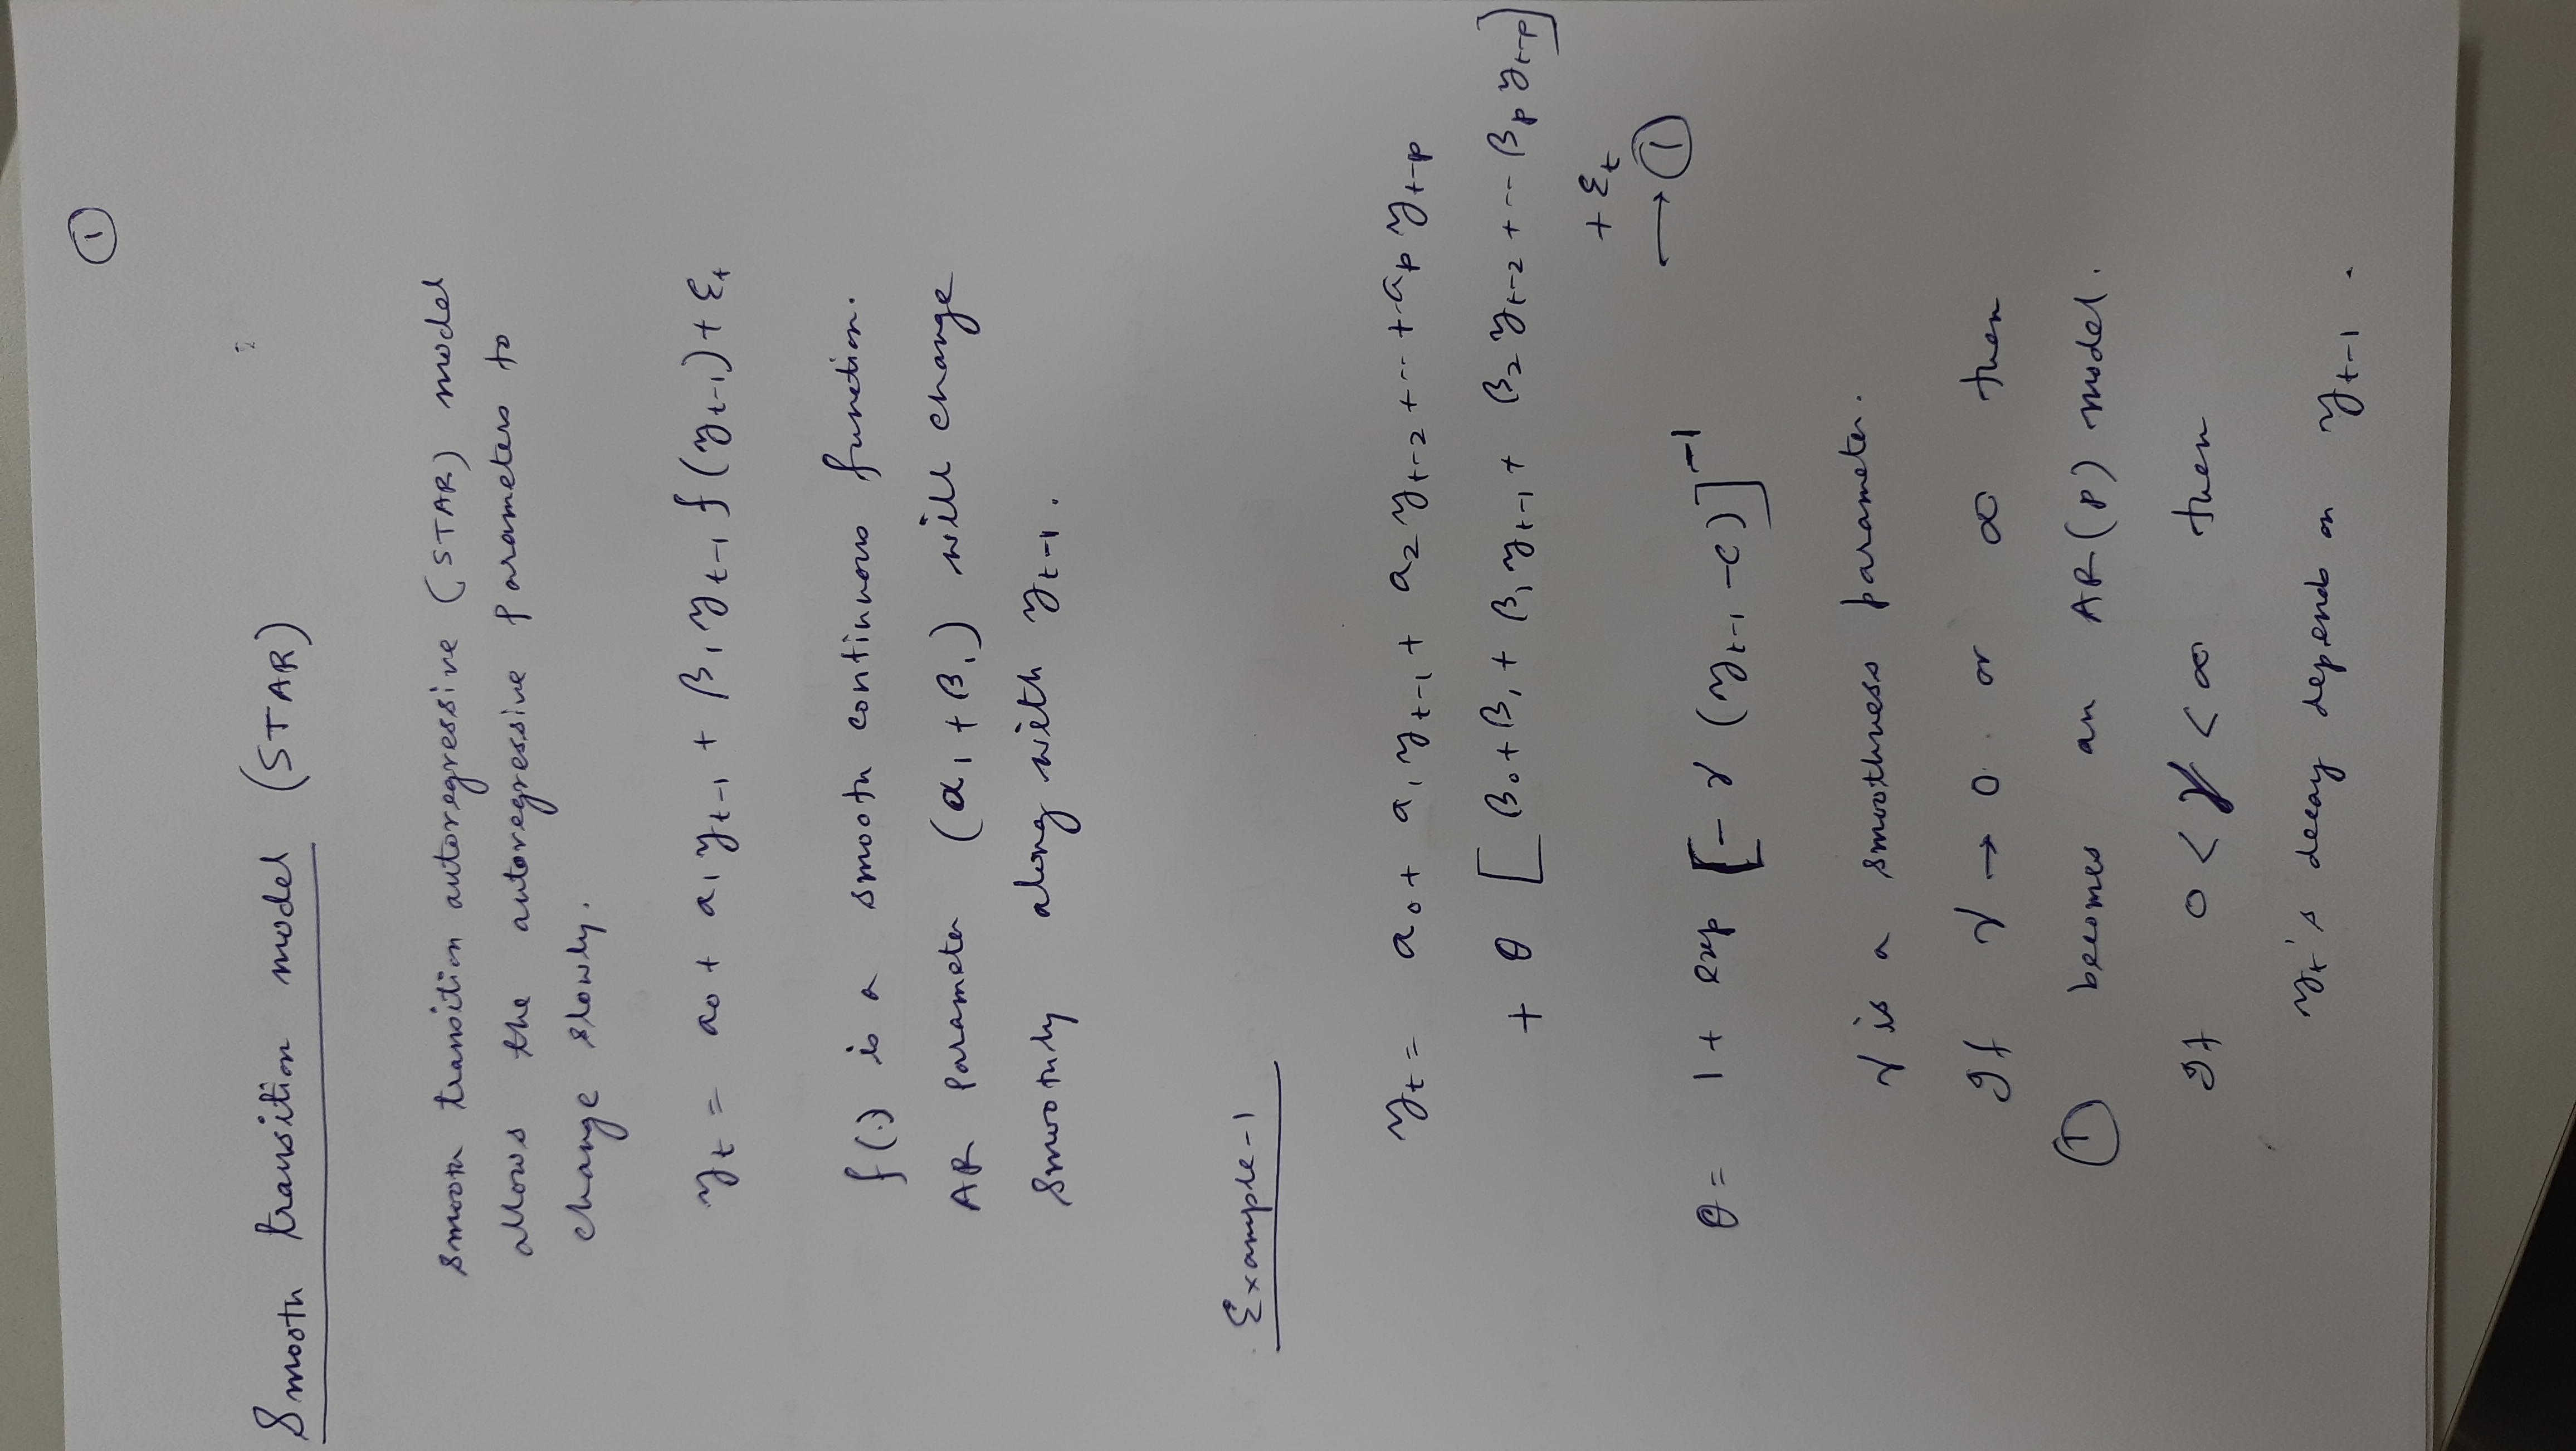 ①
Smooth transition model (STAR)
Smooth transition autoregressive (STAR) model
allows the autoregressive parameters to
change slowly.
y_t = a_0 + a_1 y_{t-1} + β_1 y_{t-1} f(y_{t-1}) + ε_t
f(.) is a smooth continuous function.
AR Parameter (α_1 + β_1) will change
smoothly along with y_{t-1}.
Example-1
y_t = a_0 + a_1 y_{t-1} + a_2 y_{t-2} + ... + a_p y_{t-p}
+ θ [β_0 + β_1 + β_1 y_{t-1} + β_2 y_{t-2} + ... β_p y_{t-p}]
+ ε_t
→ ①
θ = 1 + exp [-γ (y_{t-1} - c)]^{-1}
γ is a smoothness parameter.
If γ → 0 or ∞ then
① becomes an AR(p) model.
If 0 < γ < ∞ then
y_t's decay depends on y_{t-1}.